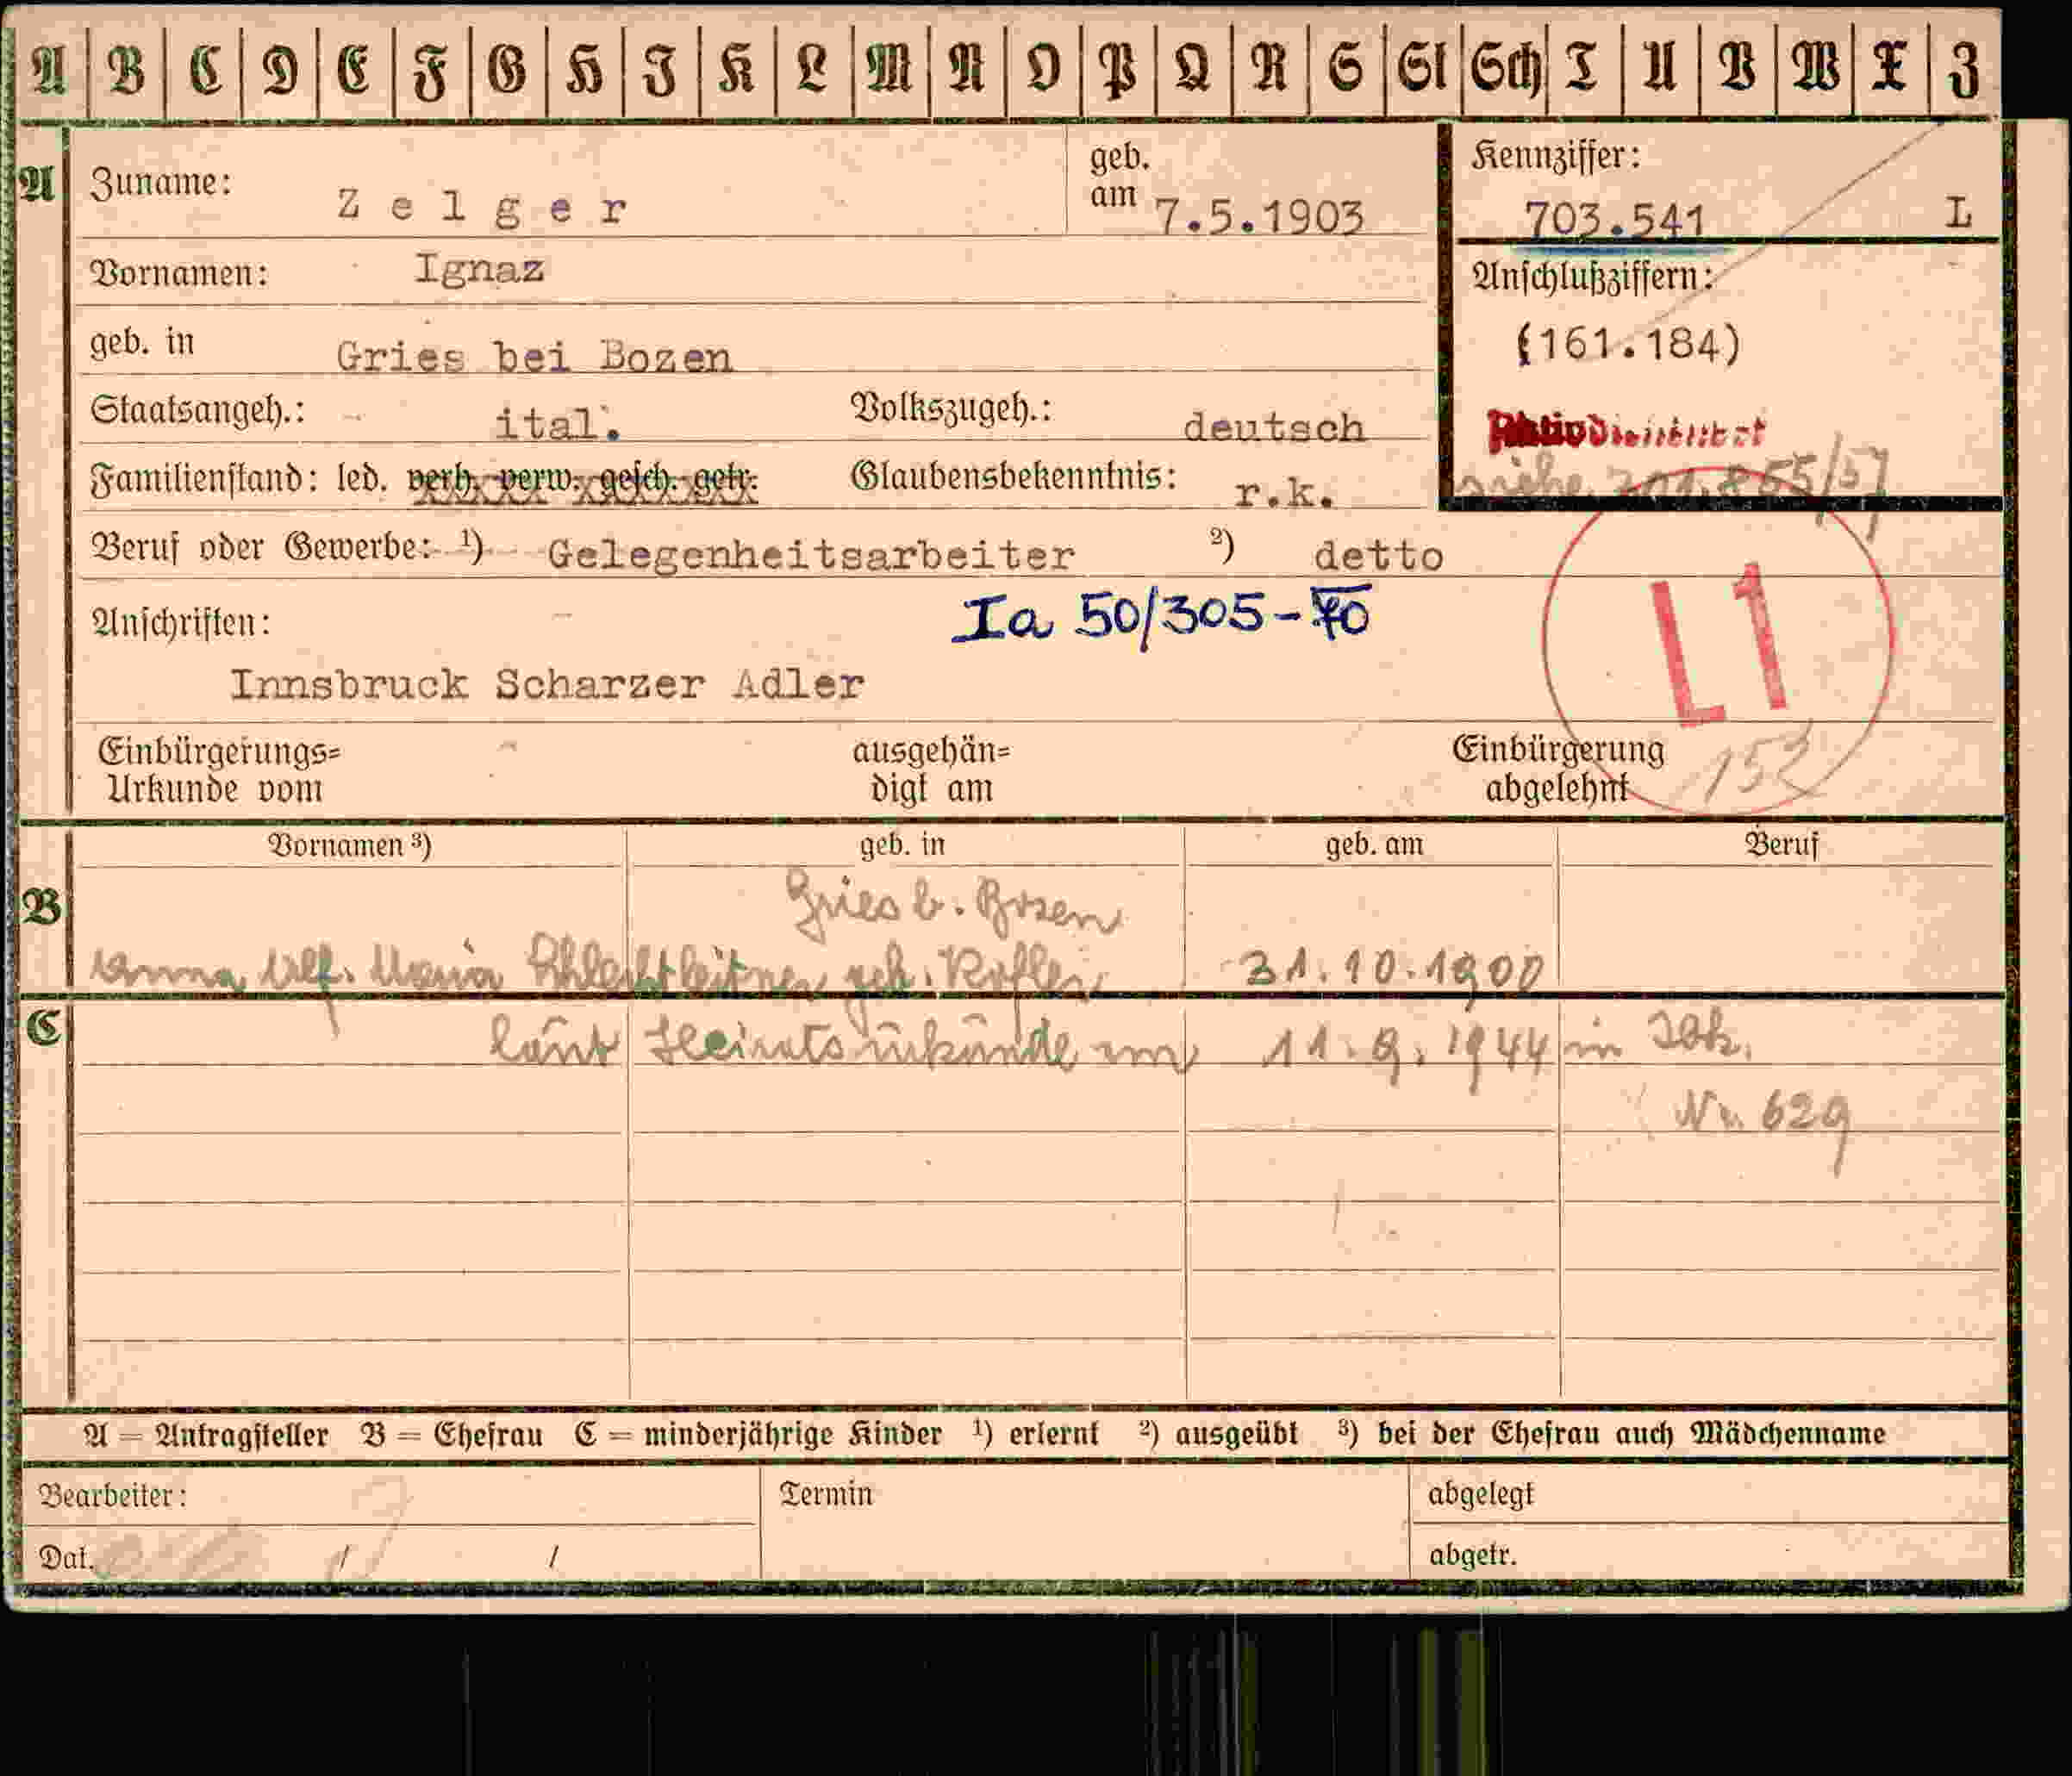 A B C D E F G H I K L M N O P Q R S St Sch T U V W X Z
A Zuname: Zelger geb. am 7.5.1903
Kennziffer: 703.541 L
Vornamen: Ignaz
Anschlußziffern:
geb. in Gries bei Bozen
(161.184)
Staatsangeh.: ital. Volkszugeh.: deutsch
Familienstand: led. verh. verw. gesch. getr. Glaubensbekenntnis: r.k.
siehe
Beruf oder Gewerbe: ¹) Gelegenheitsarbeiter ²) detto
Ia 50/305-70
L1
Anschriften:
Innsbruck Scharzer Adler
Einbürgerungs=
Urkunde vom
ausgehän=
digt am
Einbürgerung
abgelehnt
152
Vornamen ³) geb. in geb. am Beruf
B
Gries b. Bozen
Anna Maria geb. Kofler 31.10.1900
C
laut Heiratsurkunde am 11.9.1944 in Ibk.
Nr. 629
A = Antragsteller B = Ehefrau C = minderjährige Kinder ¹) erlernt ²) ausgeübt ³) bei der Ehefrau auch Mädchenname
Bearbeiter: Termin abgelegt
Dat. / / abgetr.